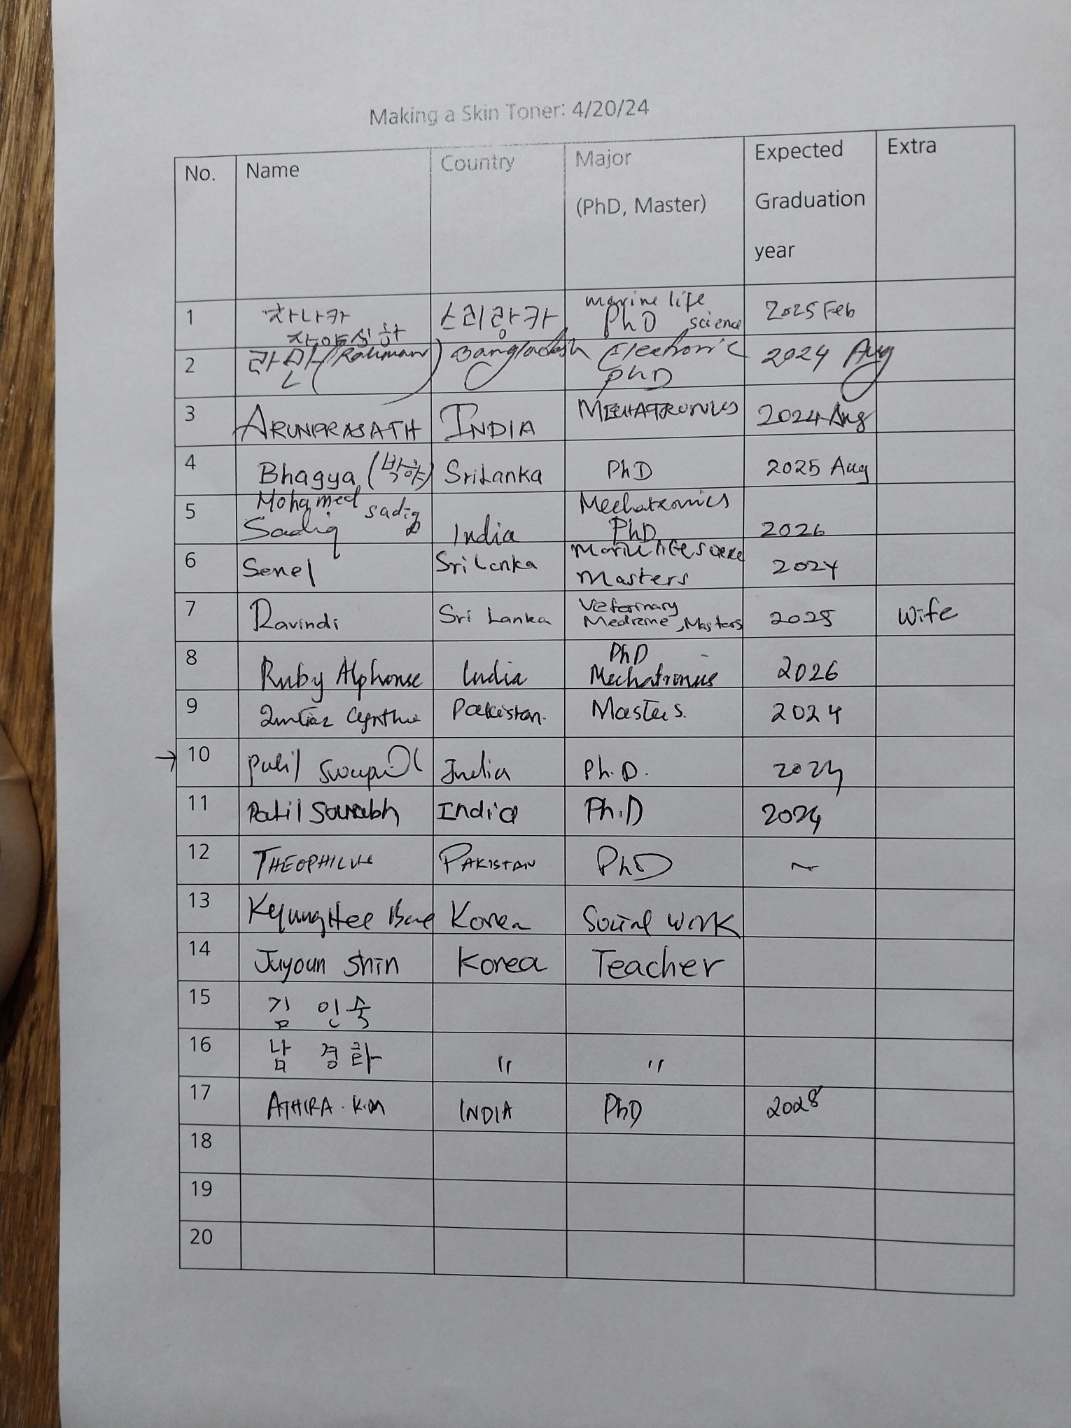 Making a Skin Toner: 4/20/24
No. Name Country Major Expected Extra
(PhD, Master) Graduation
year
1 차나카 스리랑카 marine life 2025 Feb
PhD science
2 라만 (Rahman) Bangladesh Electronic 2024 Aug
PhD
3 ARUNPRASATH INDIA MECHATRONICS 2024 Aug
4 Bhagya (박하) SriLanka PhD 2025 Aug
5 Mohamed sadiq Mechatronics
Sadiq India PhD 2026
6 Senel SriLanka 2024
Masters
7 Ravindi Sri Lanka Veterinary Wife
Masters
8 PhD
Ruby Alphonse India Mechatronics 2026
9 Pakistan. Masters. 2024
→ 10 India Ph.D. 2024
11 Patil Sourabh India Ph.D 2024
12 PAKISTAN PhD ~
13 KyungHee Bae Korea Social work
14 Juyoun Shin Korea Teacher
15 김 인숙
16 남 경화 〃 〃
17 ATHIRA. K.M INDIA PhD 2028
18
19
20